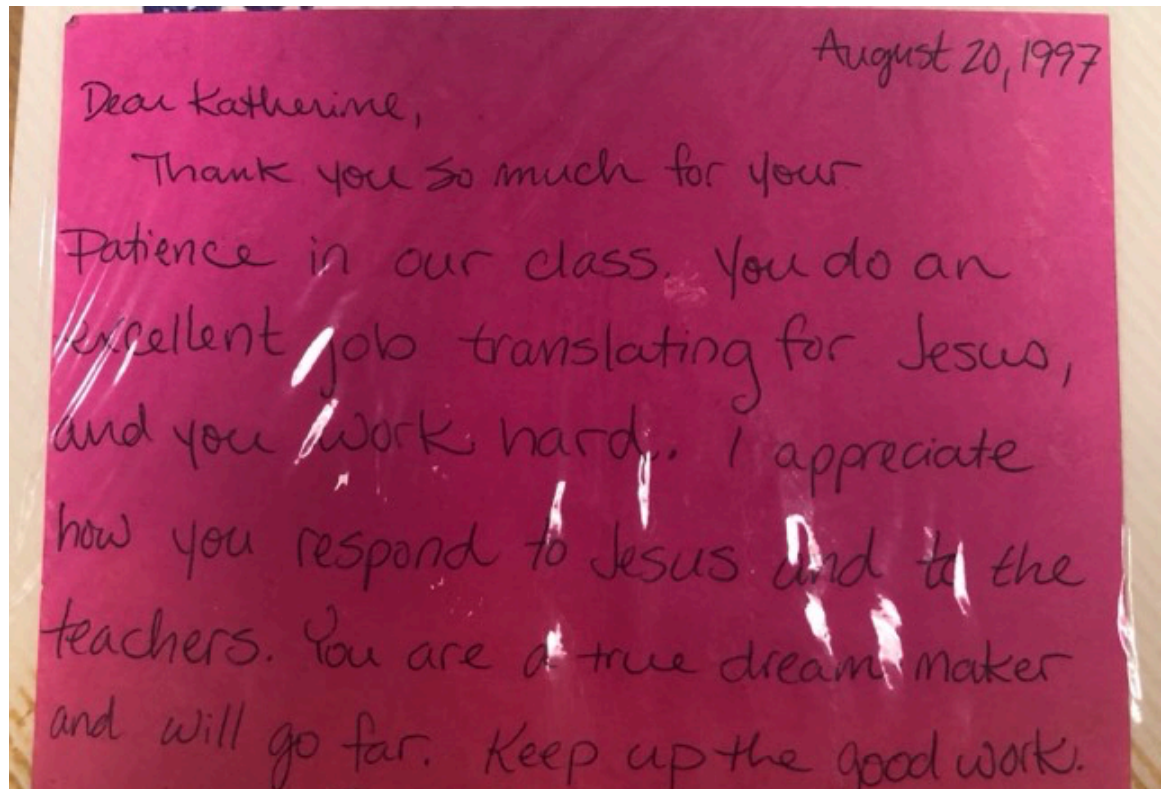 August 20, 1997
Dear Katherine,
Thank you so much for your
Patience in our class. You do an
excellent job translating for Jesus,
and you work hard. I appreciate
how you respond to Jesus and to the
teachers. You are a true dream maker
and will go far. Keep up the good work.